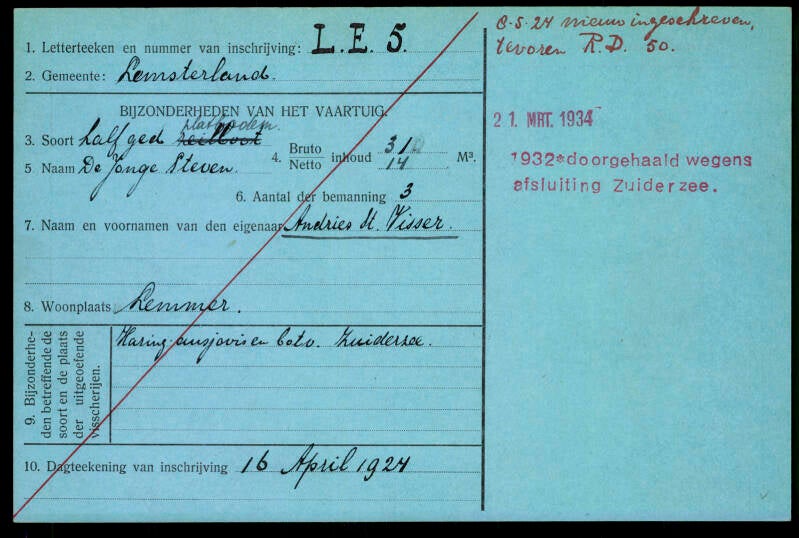 1. Letterteeken en nummer van inschrijving: L.E. 5.
2. Gemeente: Lemsterland.
BIJZONDERHEDEN VAN HET VAARTUIG.
platbodem.
3. Soort half ged zeilboot
4. Bruto Netto inhoud 31 14 M³.
5 Naam De Jonge Steven
6. Aantal der bemanning 3
7. Naam en voornamen van den eigenaar Andries St. Visser.
8. Woonplaats Lemmer.
9. Bijzonderhe-
den betreffende de
soort en de plaats
der uitgeoefende
visscherijen.
Haring, ansjovis en botv. Zuiderzee.
10. Dagteekening van inschrijving 16 April 1924
8-5-24 nieuw ingeschreven,
tevoren R.D. 50.
21. MRT. 1934
1932*doorgehaald wegens
afsluiting Zuiderzee.